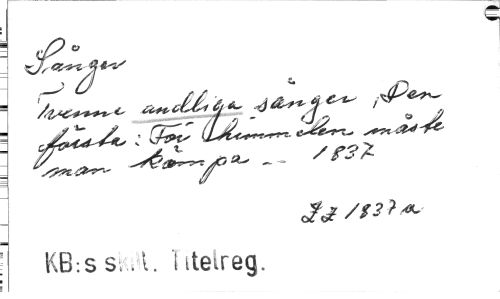 Sånger
Tvenne andliga sånger, Den
första: För himmelen måste
man kämpa -- 1837
ZZ 1837 a
KB:s skill. Titelreg.